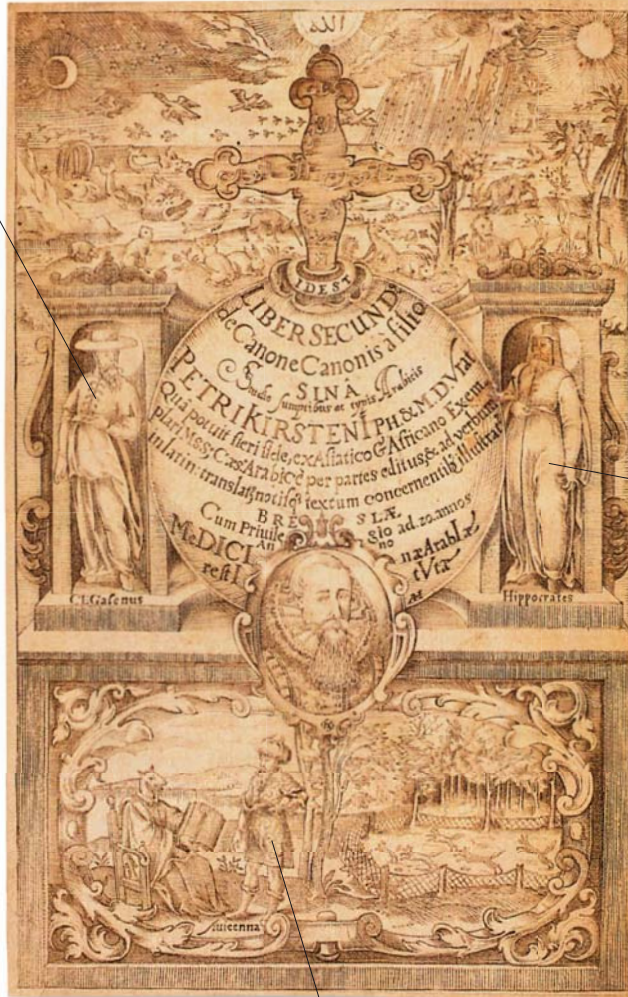 الله
IDEST
LIBER SECUNDꝰ
de Canone Canonis à filio
SINA
Studio sumptibus ac typis Arabicis
PETRI KIRSTENI PH. & M. D
Quâ potuit fieri fide, ex Asiatico & Affricano Exem
per partes editus, & ad verbum
in latin: textum concernentibꝰ illustratꝰ
BRE SLÆ
Cum Priuile gio ad 20. annos
An no
MeDICI næArabIæ
restI tVtæ
Cl. Galenus
Hippocrates
Auicenna